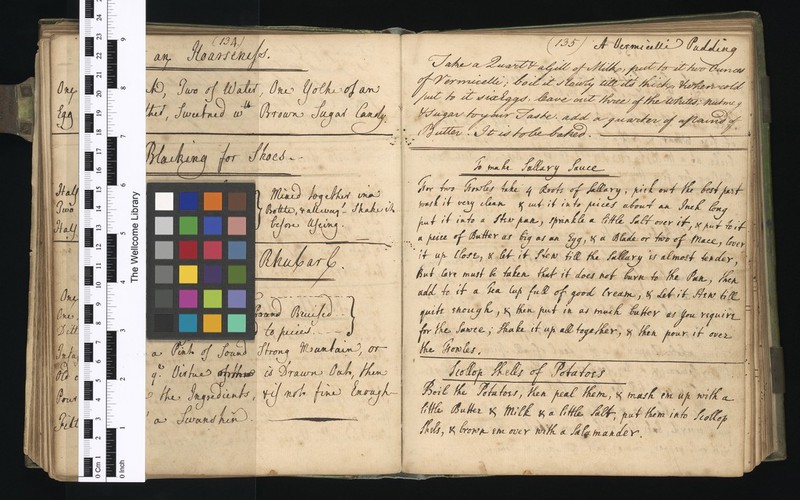 (134)
an Hoarseness.
One, Two of Water, One Yolke of an
Egg, Sweetned wth Brown Sugar Candy
Blacking for Shoes
Half
Two
Half
Mixed together in a
Bottle, & allways Shake it
before Using
Rhubarb.
One
One Pound Bruised
Ditto to pieces
a Pint of Sound Strong Mountain, or
Virtue is Drawn Out, then
the Ingredients, & if not fine Enough
a Swanskin
The Wellcome Library
(135) A Vermicelli Pudding
Take a Quart & a Gill of Milk, put to it four Ounces
of Vermicelli, boil it slowly till its thick, when cold
put to it six Eggs. leave out three of the Whites. nutmeg
& Sugar to your Taste. add a quarter of a pound of
Butter. It is to be baked.
To make Sallary Sauce
For two Fowles take 4 Roots of Sallary, pick out the best part
wash it very clean & cut it into pieces about an Inch long
put it into a Stew pan, sprinkle a little Salt over it, & put to it
a piece of Butter as big as an Egg, & a Blade or two of Mace, Cover
it up Close, & let it Stew till the Sallary is almost tender,
But Care must be taken that it does not burn to the Pan, then
add to it a tea Cup full of good Cream, & let it Stew till
quite enough, & then put in as much butter as you require
for the Sauce; shake it up all together, & then pour it over
the Fowles.
Scollop Shells of Potatoes
Boil the Potatoes, then peal them, & mash em up with a
little Butter & Milk & a little Salt, put them into Scollop
Shells, & brown em over with a Salamander.